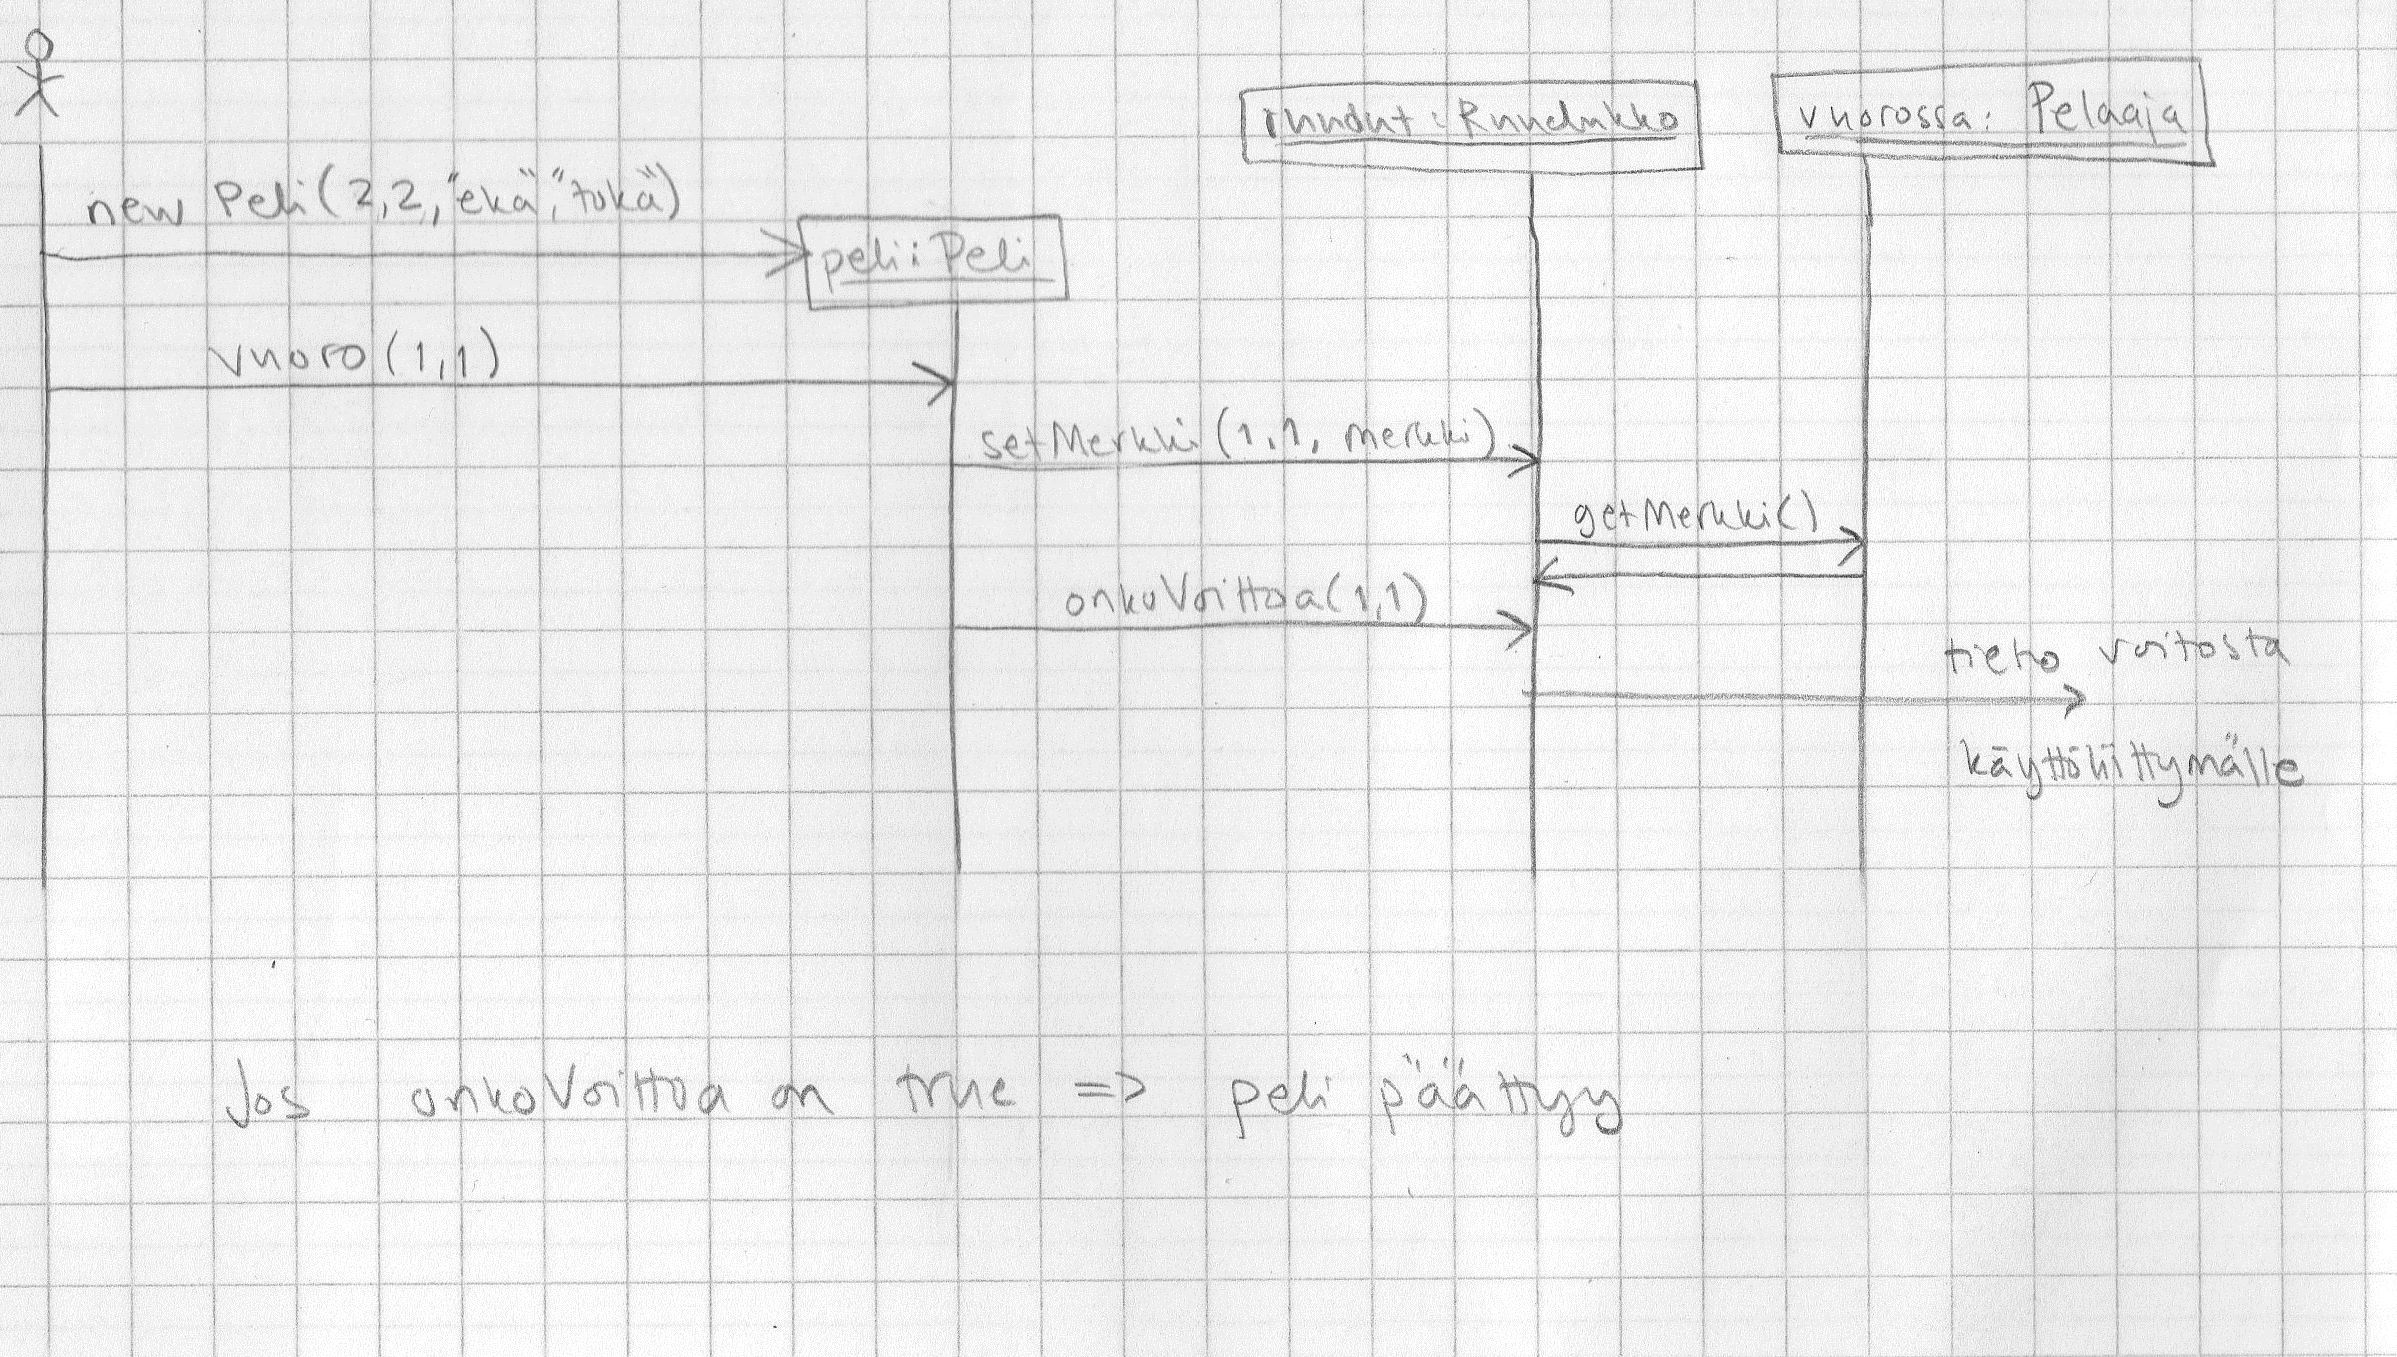 ruudut : Ruudukko
vuorossa: Pelaaja
new Peli(2,2,"ekä","tokä")
peli: Peli
vuoro(1,1)
setMerkki(1,1, merkki)
getMerkki()
onkoVoittoa(1,1)
tieto voitosta
käyttöliittymälle
Jos onkoVoittoa on true => peli päättyy